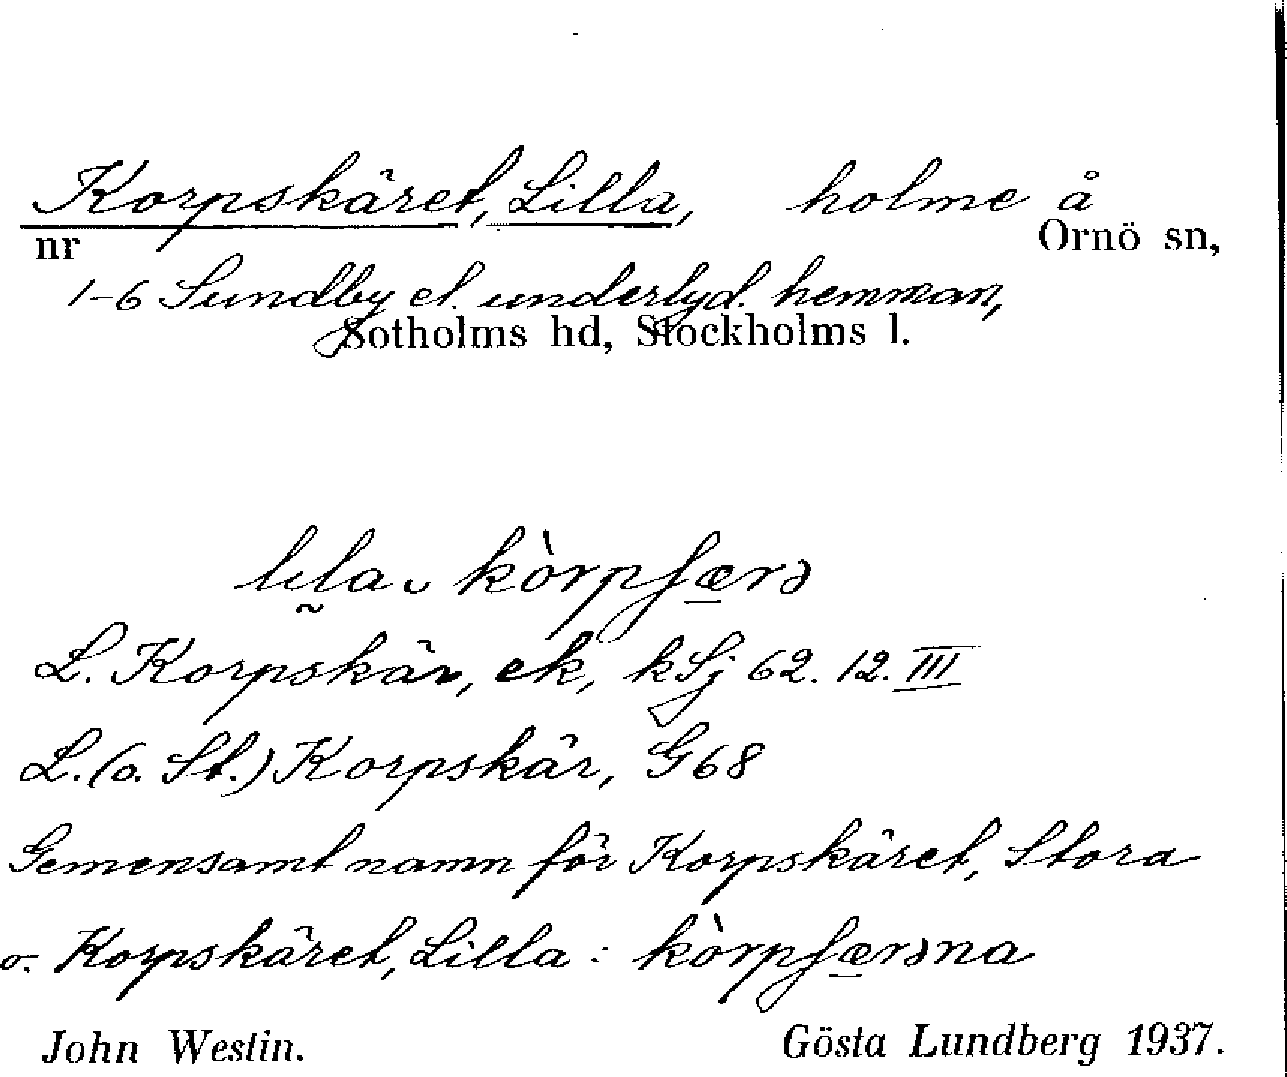 Korpskäret, Lilla, holme å
nr Ornö sn,
1-6 Sundby et. underlyd. hemman,
Sotholms hd, Stockholms l.
kòrpʃærə
L. Korpskär, ek, kSj 62. 12. III
L. (o. St.) Korpskär, G68
Gemensamt namn för Korpskäret, Stora
o. Korpskäret, Lilla : kòrpʃærəna
John Westin. Gösta Lundberg 1937.